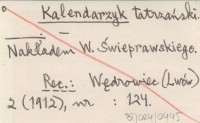 Kalendarzyk tatrzański.
Nakładem W. Świeprawskiego.
Rec.: Wędrowiec (Lwów)
2 (1912), nr : 124.